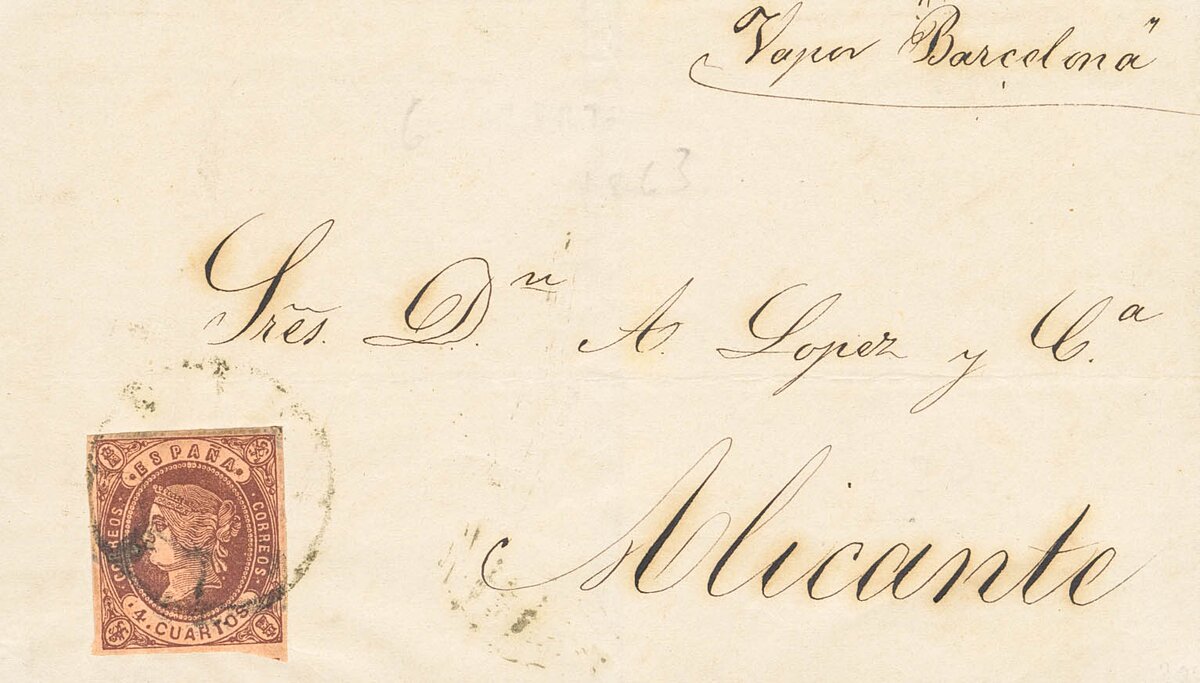 Vapor "Barcelona"
Sres. Dn A. Lopez y Ca
Alicante
ESPAÑA
CORREOS
CORREOS
4. CUARTOS